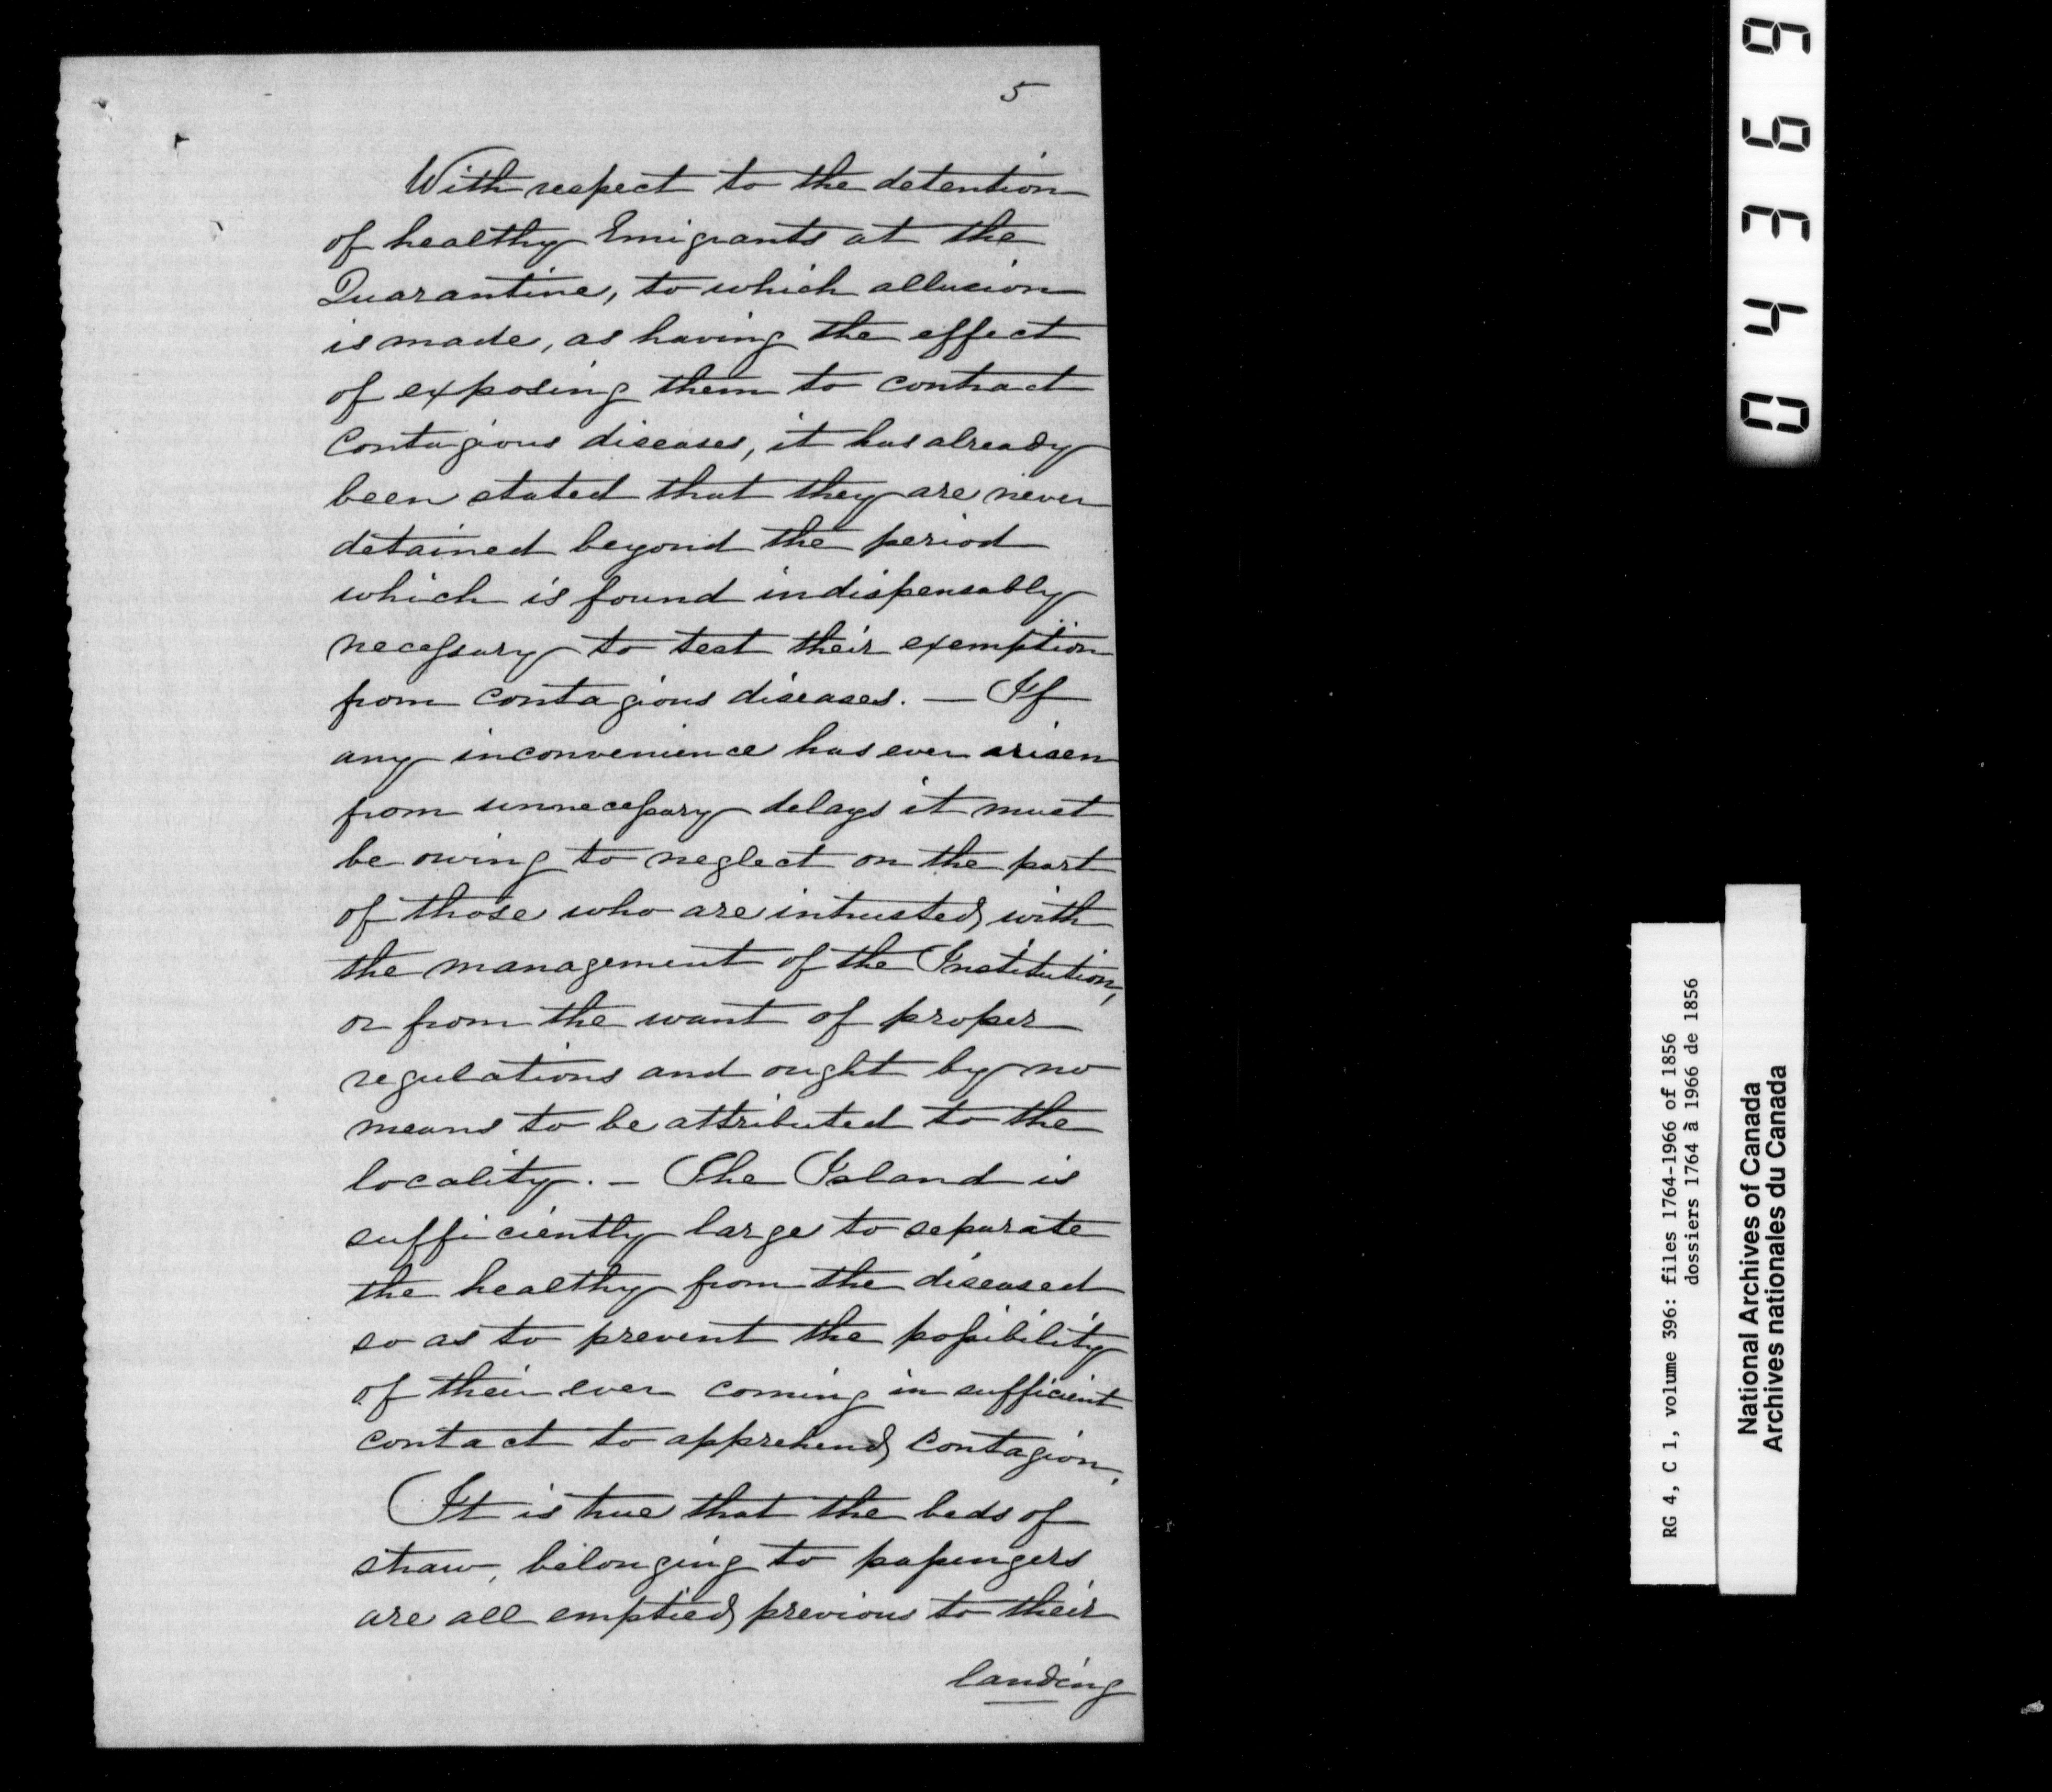 5
With respect to the detention
of healthy Emigrants at the
Quarantine, to which allusion
is made, as having the effect
of exposing them to contract
Contagious diseases, it has already
been stated that they are never
detained beyond the period
which is found indispensably
necessary to test their exemption
from contagious diseases. — If
any inconvenience has ever arisen
from unnecessary delays it must
be owing to neglect on the part
of those who are intrusted with
the management of the Institution,
or from the want of proper
regulations and ought by no
means to be attributed to the
locality. — The Island is
sufficiently large to separate
the healthy from the diseased
so as to prevent the possibility
of their ever coming in sufficient
contact to apprehend contagion.
It is true that the beds of
straw, belonging to passengers
are all emptied previous to their
landing
04369
RG 4, C 1, volume 396: files 1764-1966 of 1856
dossiers 1764 à 1966 de 1856
National Archives of Canada
Archives nationales du Canada